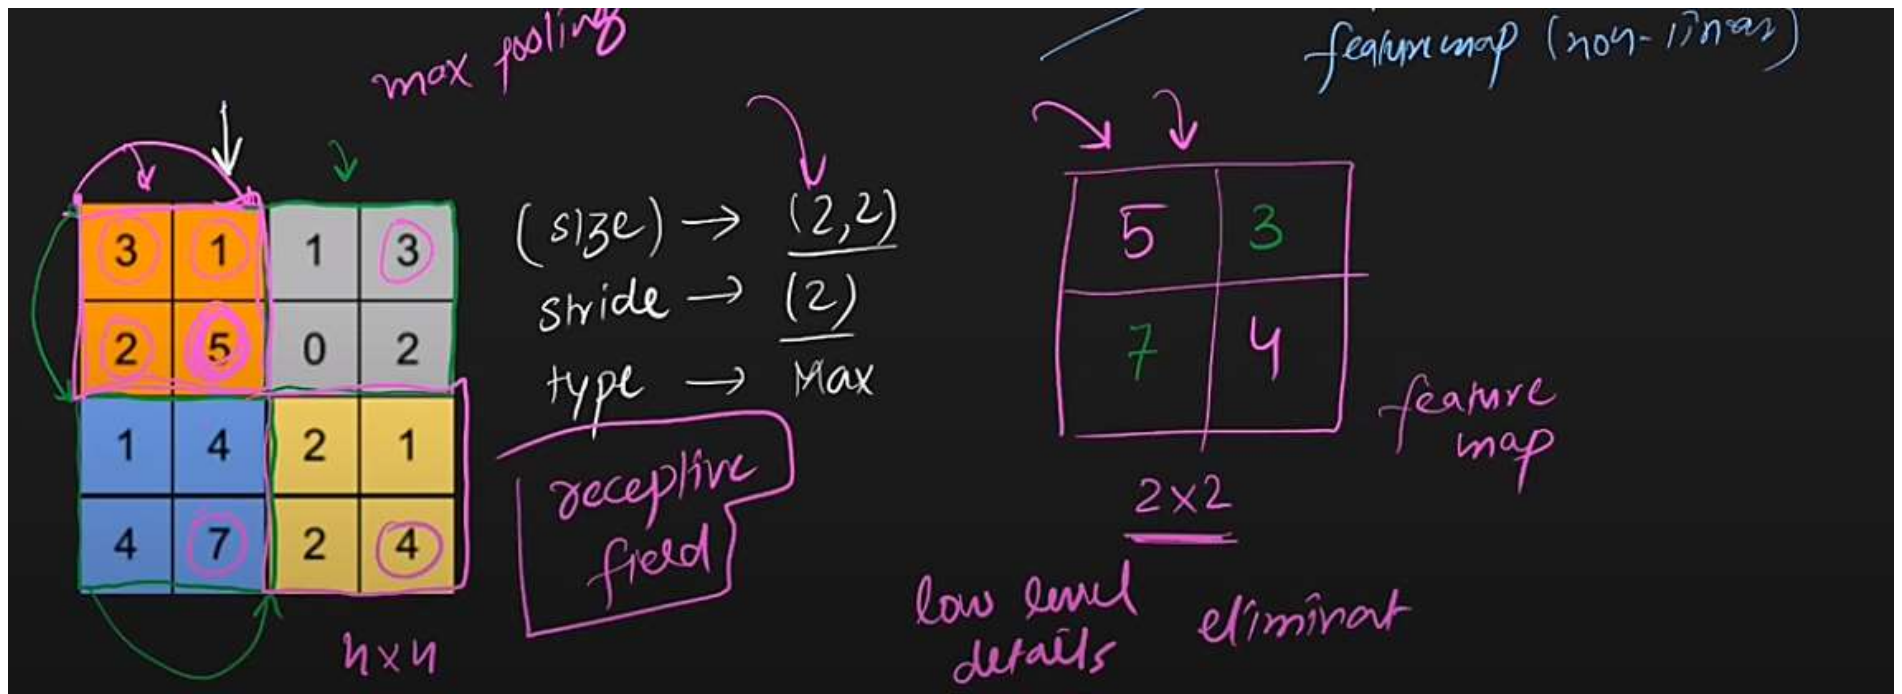 max pooling
feature map (non-linear)
3 1 1 3
2 5 0 2
1 4 2 1
4 7 2 4
4x4
(size) → (2,2)
stride → (2)
type → Max
receptive
field
5 3
7 4
feature
map
2x2
low level
details
eliminat